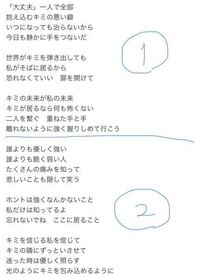 「大丈夫」一人で全部
抱え込むキミの悪い癖
いつになっても治らないから
今日も静かに手をつないだ
世界がキミを弾き出しても
私がそばに居るから
恐れなくていい 扉を開けて
キミの未来が私の未来
キミが居るなら何も怖くない
二人を繋ぐ 重ねた手と手
離れないように強く握りしめて行こう
1
誰よりも優しく強い
誰よりも脆く弱い人
たくさんの痛みを知って
悲しいことも隠して笑う
ホントは強くなんかないこと
私だけは知ってるよ
忘れないでね ここに居ること
キミを信じる私を信じて
キミの隣にずっといさせて
迷った時は優しく照らす
光のようにキミを包み込めるように
2